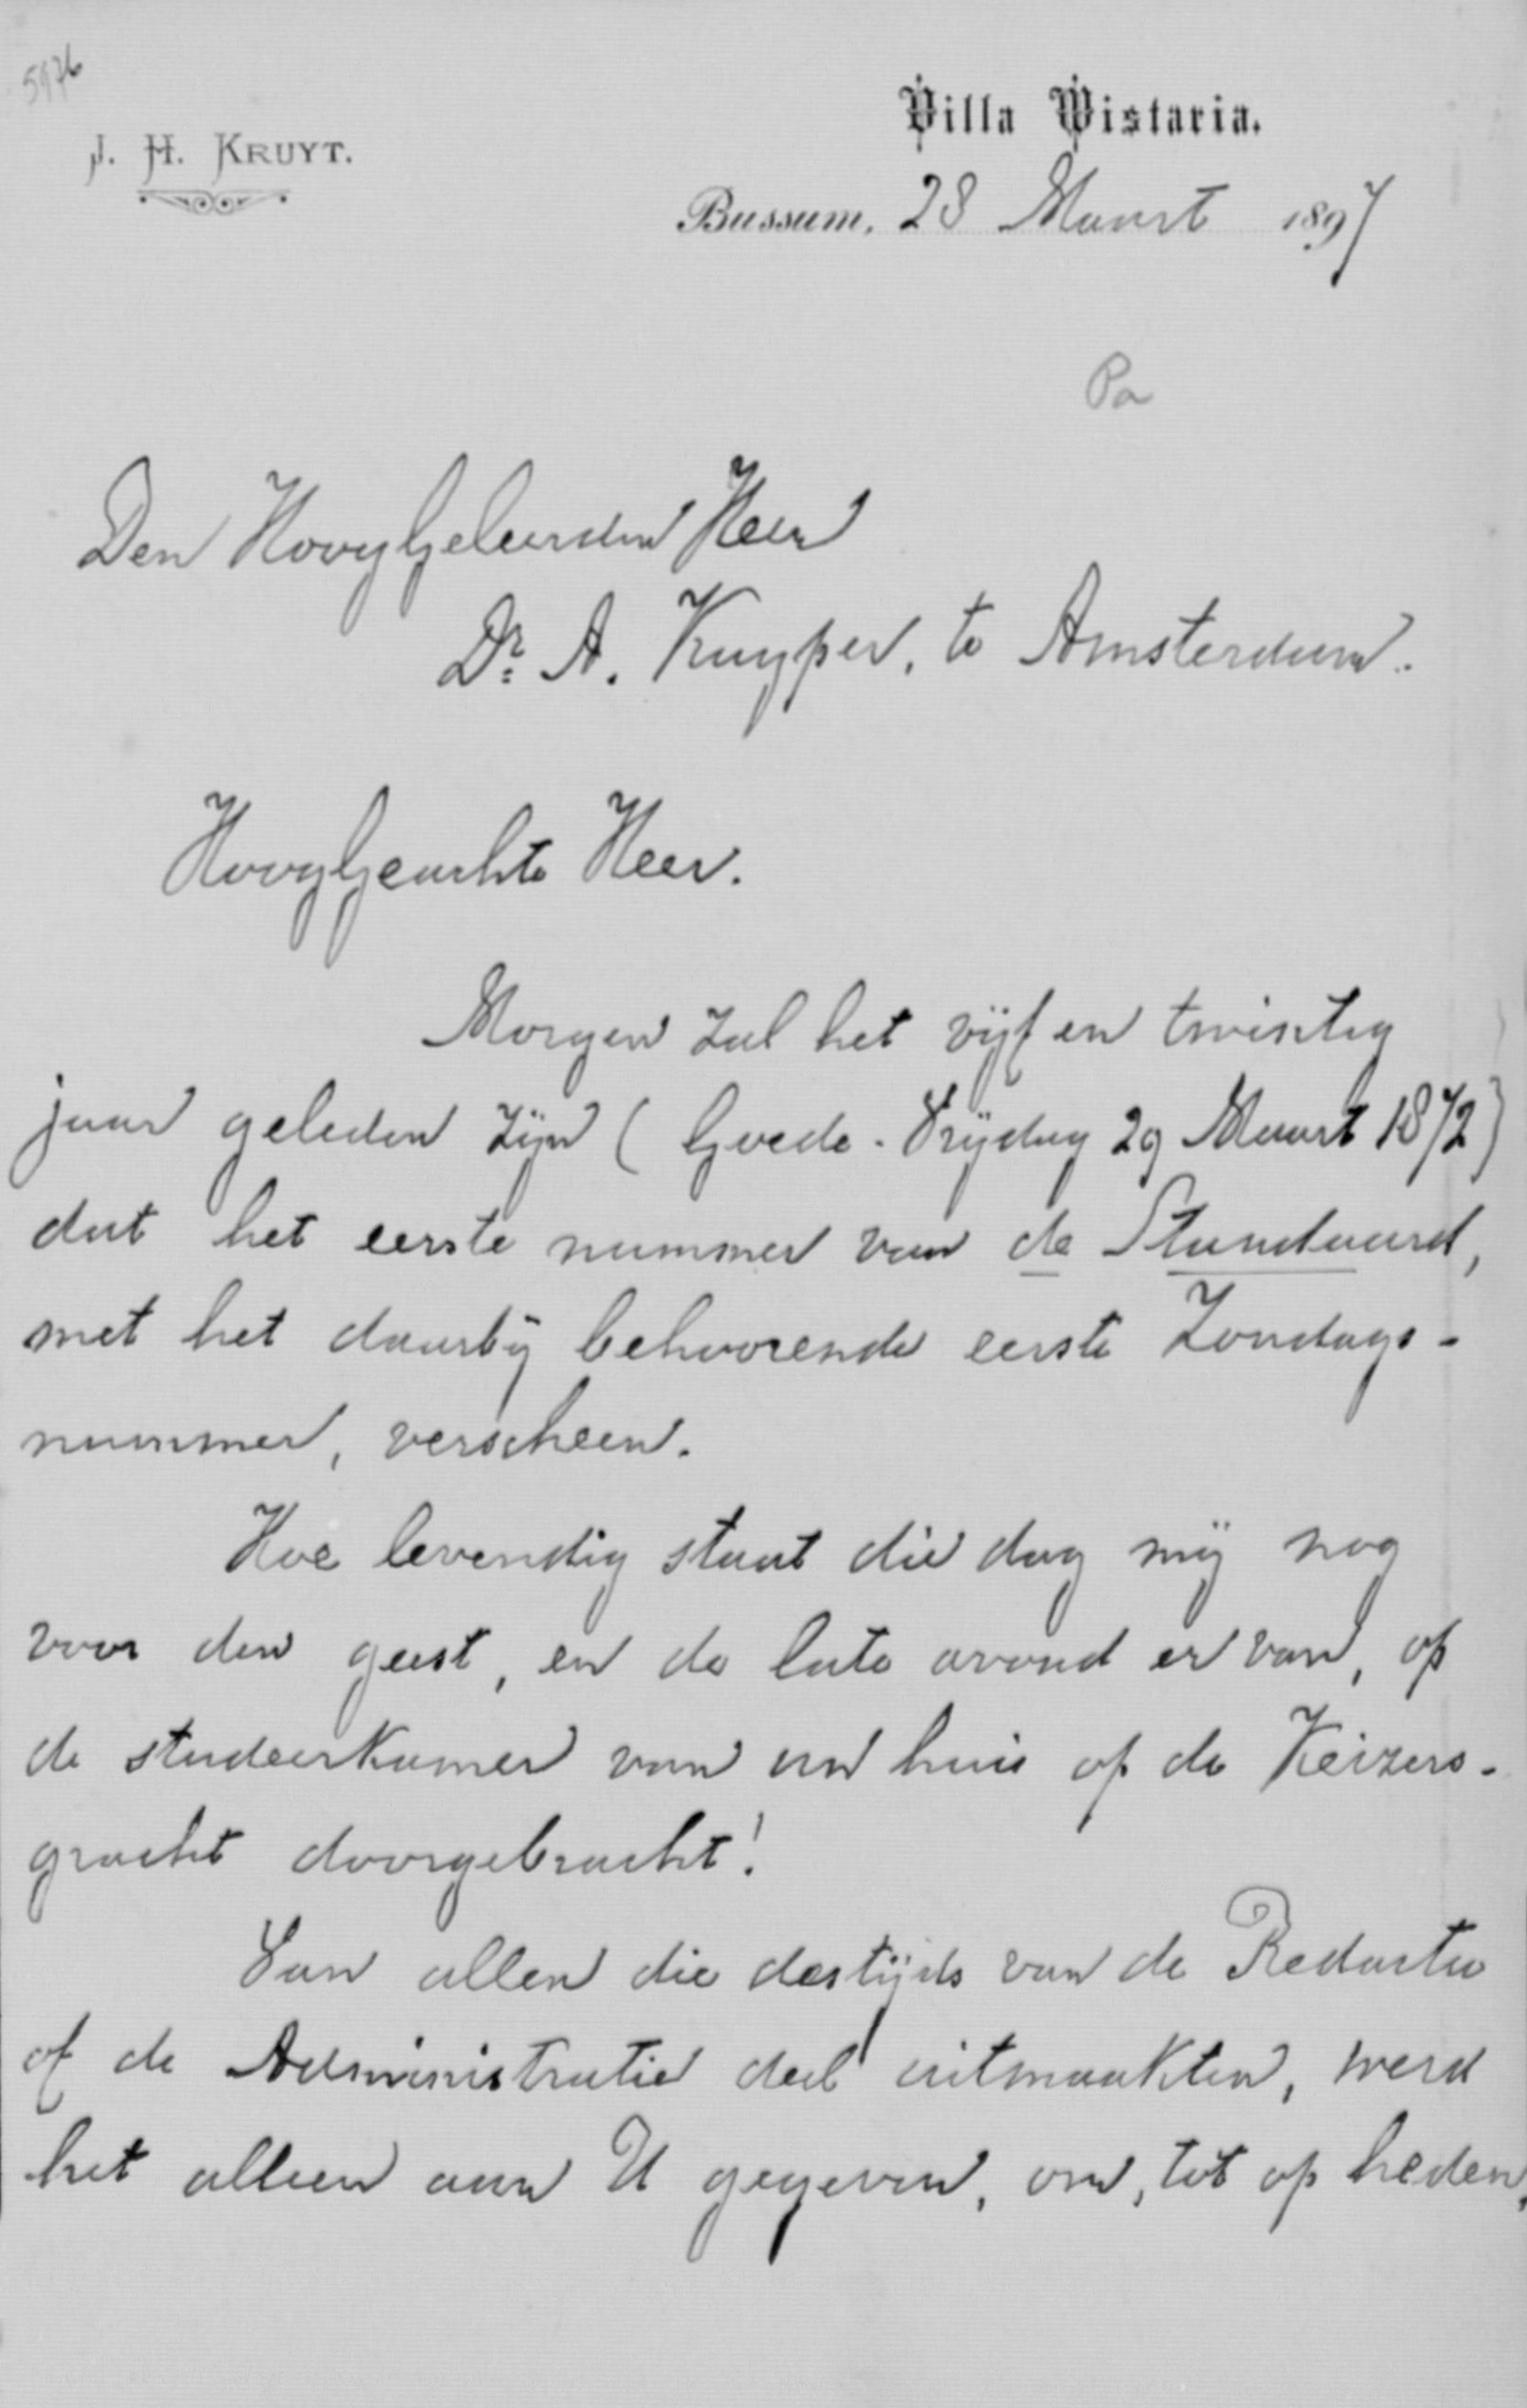 5976
Villa Wistaria.
J. H. KRUYT.
Bussum, 28 Maart 1897
Pa
Den HoogGeleerden Heer
Dr. A. Kuyper, te Amsterdam.
HoogGeachte Heer.
Morgen zal het vijf en twintig
jaar geleden zijn (Goede-Vrijdag 29 Maart 1872)
dat het eerste nummer van de Standaard,
met het daarbij behoorende eerste Zondags-
nummer, verscheen.
Hoe levendig staat die dag mij nog
voor den geest, en de late avond er van, op
de studeerkamer van uw huis op de Keizers-
gracht doorgebracht!
Van allen die destijds van de Redactie
of de Administratie deel uitmaakten, werd
het alleen aan U gegeven, om, tot op heden,